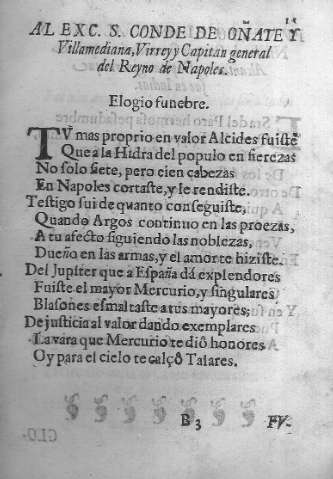 AL EXC. S. CONDE DE OÑATE Y
Villamediana, Virrey y Capitan general
del Reyno de Napoles.
Elogio funebre.
TV mas proprio en valor Alcides fuiste
Que a la Hidra del populo en fierezas
No solo siete, pero cien cabezas
En Napoles cortaste, y le rendiste.
Testigo fui de quanto conseguiste,
Quando Argos continuo en las proezas,
A tu afecto siguiendo las noblezas,
Dueño en las armas, y el amor te hiziste.
Del Jupiter que a España dá explendores
Fuiste el mayor Mercurio, y singulares
Blasones esmaltaste a tus mayores;
De justicia al valor dando exemplares
La vara que Mercurio te diò honores
Oy para el cielo te calçò Talares.
B 3
FV-